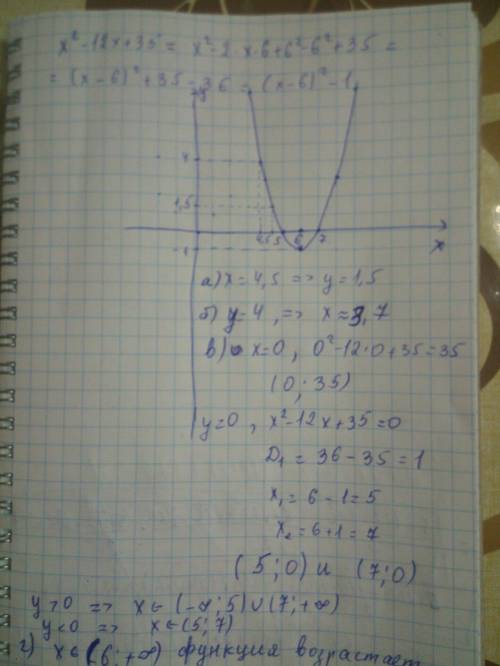 x² - 12x + 35 = x² - 2·x·6 + 6² - 6² + 35 =
= (x - 6)² + 35 - 36 = (x - 6)² - 1
y
4
1,5
4,5 5 6 7
x
-1
а) x = 4,5 => y = 1,5
б) y = 4, => x ≈ 3,7
в) x = 0, 0² - 12·0 + 35 = 35
(0; 35)
y = 0, x² - 12x + 35 = 0
D₁ = 36 - 35 = 1
x₁ = 6 - 1 = 5
x₂ = 6 + 1 = 7
(5; 0) и (7; 0)
y > 0 => x ∈ (-∞; 5) ∪ (7; +∞)
y < 0 => x ∈ (5; 7)
г) x ∈ (6; +∞) функция возрастает